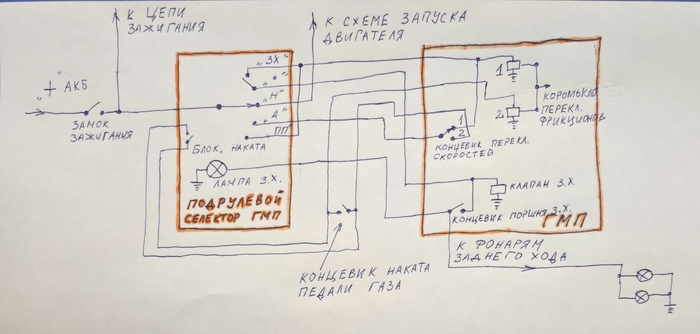 К ЦЕПИ
ЗАЖИГАНИЯ
К СХЕМЕ ЗАПУСКА
ДВИГАТЕЛЯ
"+" АКБ
ЗАМОК
ЗАЖИГАНИЯ
"ЗХ"
"Н"
"А"
ПП
БЛОК. НАКАТА
ЛАМПА З.Х.
ПОДРУЛЕВОЙ
СЕЛЕКТОР ГМП
1
2
КОРОМЫСЛО
ПЕРЕКЛ.
ФРИКЦИОНОВ
1
2
КОНЦЕВИК ПЕРЕКЛ.
СКОРОСТЕЙ
КЛАПАН З.Х.
КОНЦЕВИК ПОРШНЯ З.Х.
ГМП
К ФОНАРЯМ
ЗАДНЕГО ХОДА
КОНЦЕВИК НАКАТА
ПЕДАЛИ ГАЗА